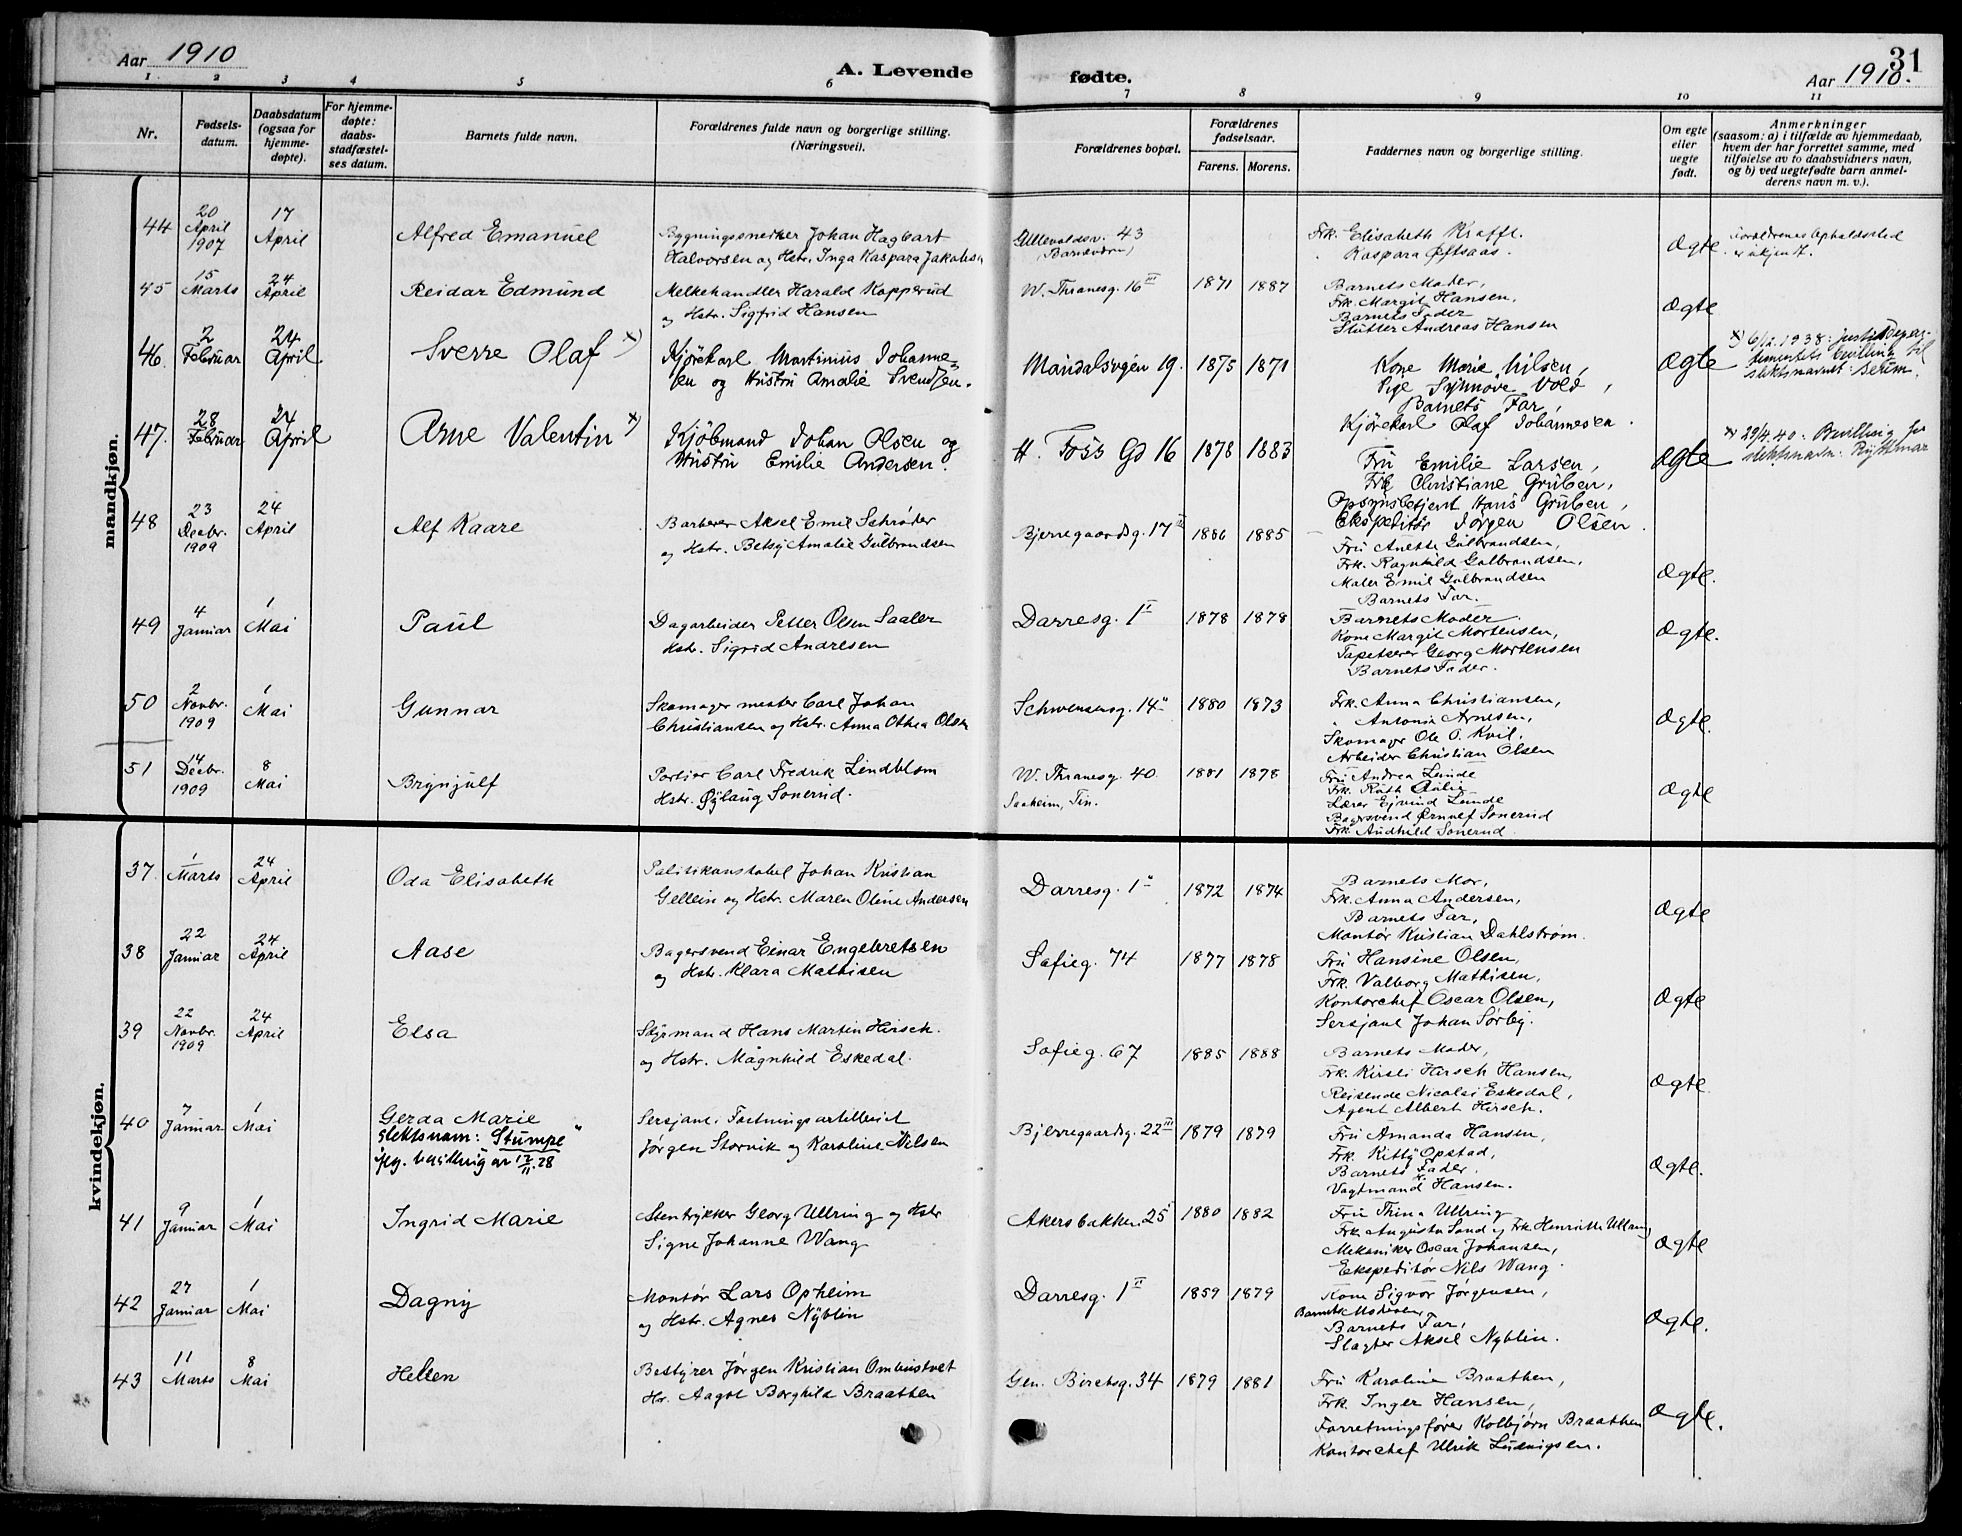 Aar 1910
A. Levende fødte.
31
Aar 1910.
1 2 3 4 5 6 7 8 9 10 11
Nr.
Fødsels-
datum.
Daabsdatum
(ogsaa for
hjemme-
døpte).
For hjemme-
døpte:
daabs-
stadfæstel-
ses datum.
Barnets fulde navn.
Forældrenes fulde navn og borgerlige stilling.
(Næringsveil).
Forældrenes bopæl.
Forældrenes
fødselsaar.
Farens. Morens.
Faddernes navn og borgerlige stilling.
Om egte
eller
uegte
født.
Anmerkninger
(saasom: a) i tilfælde av hjemmedaab,
hvem der har forrettet samme, med
tilføielse av to daabsvidners navn,
og b) ved uegtefødte barn anmel-
derens navn m. v.).
mandkjøn.
44
20
April
1907
17
April
Alfred Emanuel
Bygningssnedker Johan Hagbart
Halvorsen og Hstr. Inga Kaspara Jakobsen
Ullevoldsv. 43
Frk. Elisabeth Krafft.
Kaspara
Ægte
er ukjendt.
45
15
Marts
24
April
Reidar Edmund
Melkehandler Harald Kopperud
og Hstr. Sigfrid Hansen
W. Thranesg. 16 III
1871 1887
Barnets Moder,
Frk. Margit Hansen,
Barnets Fader
Slutter Andreas Hansen
Ægte
46.
2
Februar
24
April
Sverre Olaf x)
Kjørekarl Martinius Johanne-
sen og Hustru Amalie Svendsen.
Maridalsvgen 19.
1875 1871
Kone Marie Nilsen,
Pige Synnøve Vold,
Barnets Far,
Kjørekarl Olaf Johannesen.
Ægte
x) 6/12 1938: justisdepar-
tementets bevilling til
slektsnavnet: Berum.
47.
28
Februar
24
April
Arne Valentin x)
Kjøbmand Johan Olsen og
Hustru Emilie Andersen.
H. Foss Gd 16
1878 1883
Fru Emilie Larsen,
Frk Christiane Gruben,
Opsynsbetjent Hans Gruben,
Ekspeditør Jørgen Olsen.
Ægte
x) 29/4.40. Bevilling for
slektsnavn: Rytterager
48
23
Decbr.
1909
24
April
Alf Kaare
Barberer Aksel Emil Schrøder
og Hstr. Betsy Amalie Gulbrandsen
Bjerregaardsg. 17 II
1886 1885
Fru Anette Gulbrandsen,
Frk. Ragnhild Gulbrandsen,
Maler Emil Gulbrandsen
Barnets Far.
Ægte.
49
4
Januar
1
Mai
Paul
Dagarbeider Petter Olsen Saaler
Hstr. Sigrid Andresen
Darresg. 1 I
1878 1878
Barnets Moder.
Kone Margit Mortensen,
Tapetserer Georg Mortensen
Barnets Fader.
Ægte.
50
2
Novbr.
1909
1
Mai
Gunnar
Skomager mester Carl Johan
Christiansen og Hstr. Anna Othea Olsen
Schwensensg. 14 II
1880 1873
Frk. Anna Christiansen,
" Antonia Arnesen,
Skomager Ole O. Kvil.
Arbeider Christian Olsen
Ægte.
51
14
Decbr.
1909
8
Mai
Brynjulf
Portier Carl Fredrik Lindblom
Hstr. Øylaug Sonerud.
W. Thranesg. 40
Saaheim, Tin.
1881 1878
Fru Andrea Lunde
Frk. Ruth
Lærer Eyvind Lunde
Bagersvend Ørnulf Sonerud
Frk. Audhild Sonerud
Ægte
kvindekjøn.
37.
1
Marts
24
April
Oda Elisabeth
Politikonstabel Johan Kristian
Gellein og Hstr. Maren Oline Andersen
Darresg. 1 II
1872 1874
Barnets Mor,
Frk. Anna Andersen,
Barnets Far,
Montør Kristian Dahlstrøm.
Ægte
38
22
Januar
24
April
Aase
Bagersvend Einar Engebretsen
og Hstr. Klara Mathisen
Sofieg. 74
1877 1878
Fru Hansine Olsen,
Frk. Valborg Mathisen,
Kontorchef Oscar Olsen,
Sersjant Johan Sørby.
Ægte
39
22
Novbr.
1909
24
April
Elsa
Styrmand Hans Martin Hirsch.
og Hstr. Magnhild Eskedal.
Sofieg. 67
1885 1888
Barnets Moder,
Frk. Kirsti Hirsch Hansen,
Reisende Nicolai Eskedal,
Agent Albert Hirsch.
Ægte
40
7
Januar
1
Mai
Gerda Marie
slektsnavn: "Stumpe"
ifg. bevilling av 12/11.28
Sersjant i Festningsartilleriet
Jørgen Storvik og Karoline Nilsen
Bjerregaardsg. 22 III
1879 1879
Fru Amanda Hansen,
Frk. Kitty Opstad,
Barnets Fader.
Vagtmand Hansen.
Ægte.
41
9
Januar
1
Mai
Ingrid Marie
Stentrykker Georg Ullring og Hstr
Signe Johanne Wang
Akersbakken 25
1880 1882
Fru Thina Ullring
Frk. Augusta Sand og Frk Henriette Ullring
Mekaniker Oscar Johansen,
Ekspeditør Nils Wang.
Ægte
42
27
Januar
1
Mai
Dagny
Montør Lars Opheim
og Hstr. Agnes Nyblin
Darresg. 1 II
1859 1879
Kone Sigvor Jørgensen,
Barnets Moder,
Barnets Far,
Slagter Aksel Nyblin.
Ægte.
43
11
Marts
8
Mai
Hellen
Bestyrer Jørgen Kristian Ombustvet
Hr. Aagot Borghild Braathen
Gen. Birchsg. 34
1879 1881
Fru Karoline Braathen,
Frk. Inger Hansen,
Forretningsfører Kolbjørn Braathen
Kontorchef Ulrik Ludvigsen.
Ægte.